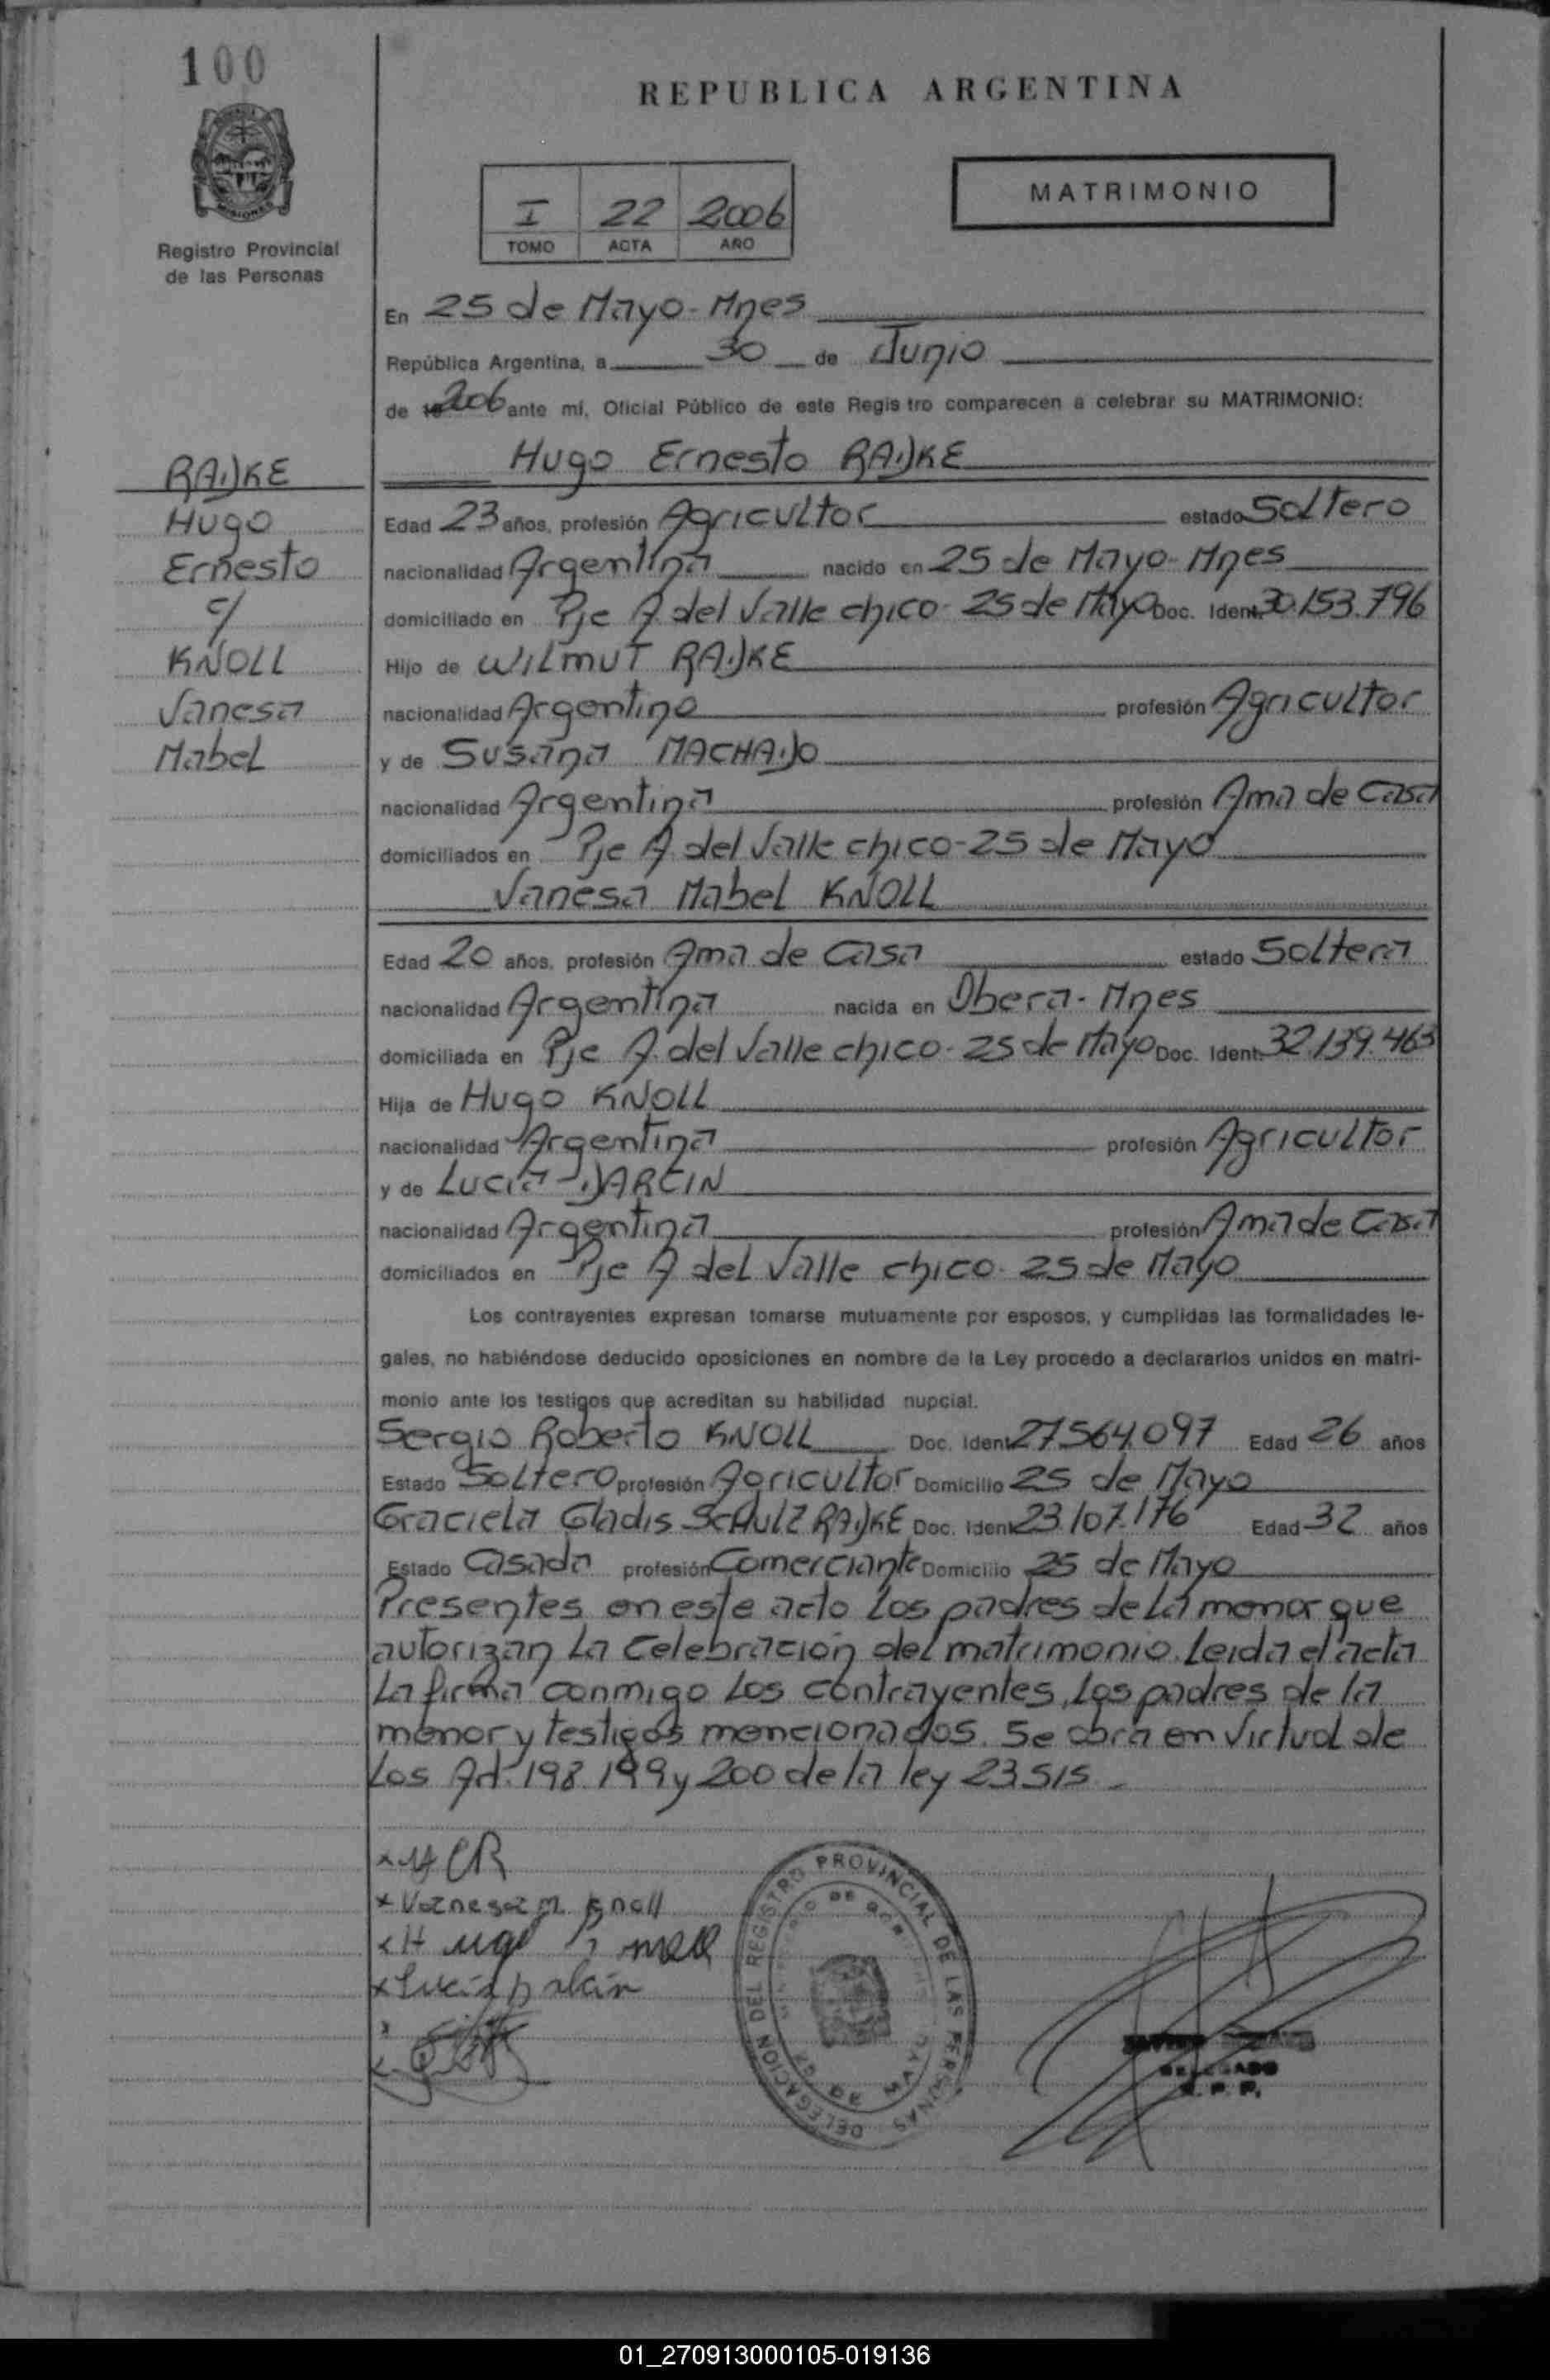 100
REPUBLICA ARGENTINA
MISIONES
Registro Provincial
de las Personas
I 22 2006
TOMO ACTA AÑO
MATRIMONIO
En 25 de Mayo-Mnes
República Argentina, a 30 de Junio
de 2006 ante mí, Oficial Público de este Registro comparecen a celebrar su MATRIMONIO:
Hugo Ernesto RADKE
RADKE
Hugo
Ernesto
c/
KNOLL
Vanesa
Mabel
Edad 23 años, profesión Agricultor estado Soltero
nacionalidad Argentina nacido en 25 de Mayo-Mnes
domiciliado en Pje A. del Valle chico-25 de Mayo Doc. Ident. 30.153.796
Hijo de WILMUT RADKE
nacionalidad Argentino profesión Agricultor
y de Susana MACHADO
nacionalidad Argentina profesión Ama de Casa
domiciliados en Pje A. del Valle chico-25 de Mayo
Vanesa Mabel KNOLL
Edad 20 años, profesión Ama de Casa estado Soltera
nacionalidad Argentina nacida en Obera-Mnes
domiciliada en Pje A. del Valle chico-25 de Mayo Doc. Ident. 32.139.463
Hija de Hugo KNOLL
nacionalidad Argentina profesión Agricultor
y de Lucia DARCIN
nacionalidad Argentina profesión Ama de Casa
domiciliados en Pje A del Valle chico-25 de Mayo
Los contrayentes expresan tomarse mutuamente por esposos, y cumplidas las formalidades le-
gales, no habiéndose deducido oposiciones en nombre de la Ley procedo a declararlos unidos en matri-
monio ante los testigos que acreditan su habilidad nupcial.
Sergio Roberto KNOLL Doc. Ident. 27564.097 Edad 26 años
Estado Soltero profesión Agricultor Domicilio 25 de Mayo
Graciela Gladis SCHULZ RADKE Doc. Ident. 23.107.176 Edad 32 años
Estado Casada profesión Comerciante Domicilio 25 de Mayo
Presentes en este acto los padres de la menor que
autorizan la Celebración del matrimonio. Leida el acta
la firma conmigo los contrayentes, los padres de la
menor y testigos mencionados. Se obra en virtud de
los Art. 198.199 y 200 de la ley 23515.-
x HER
x Vanesa M. Knoll
x Hugo
x Lucia Dalcin
DELEGACION DEL REGISTRO PROVINCIAL DE LAS PERSONAS
25 DE MAYO
DELEGADO
R. P. P.
01_270913000105-019136